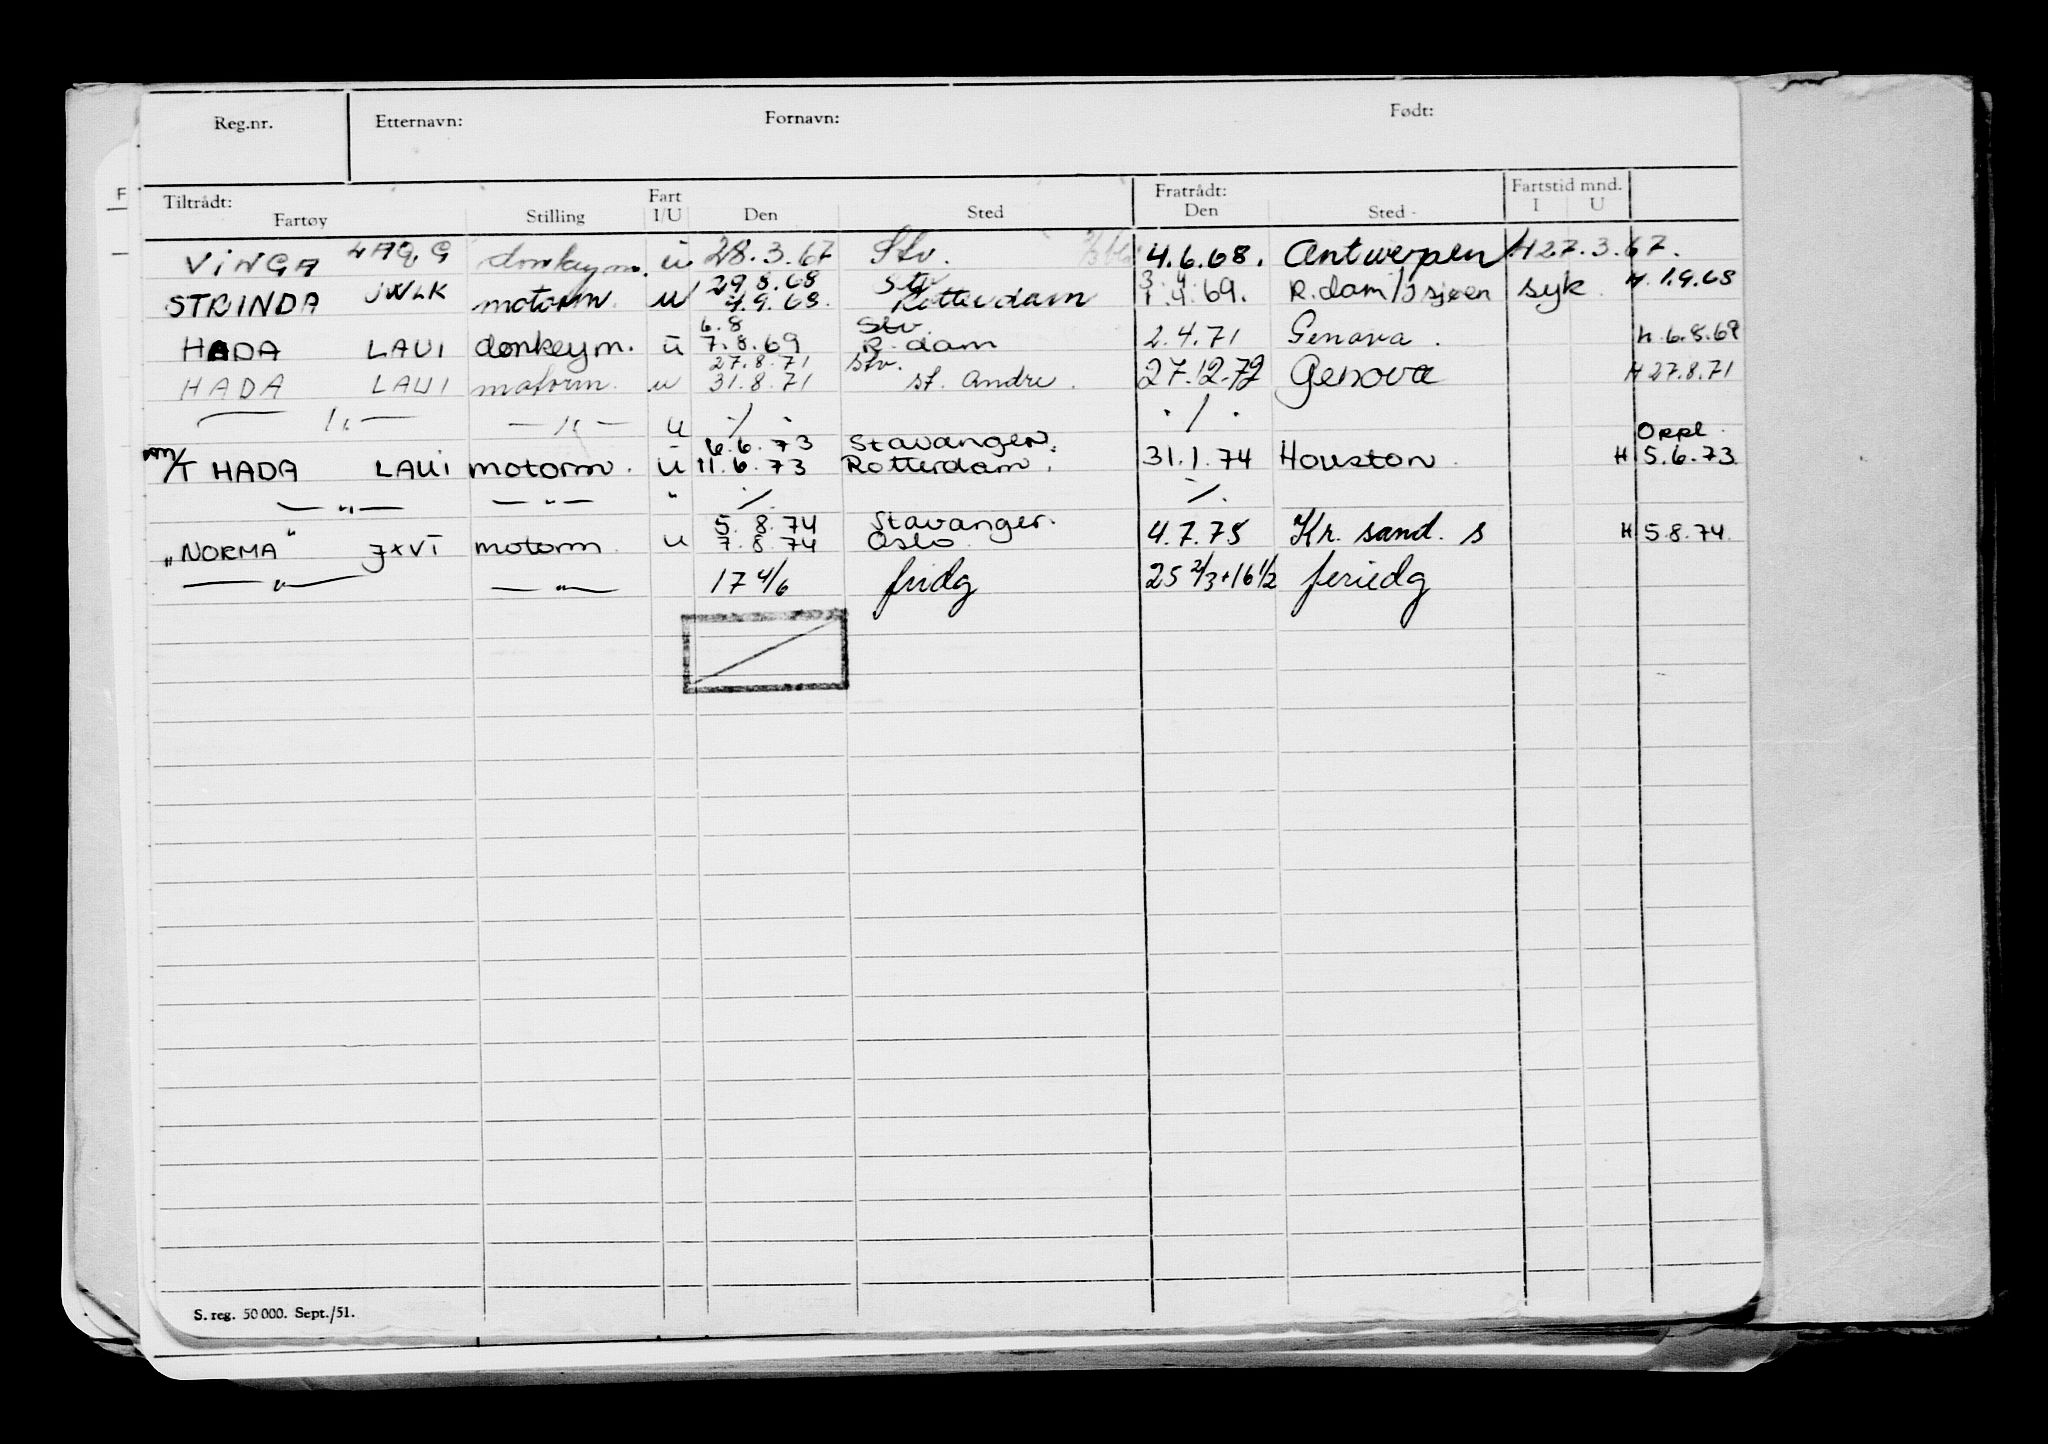 Reg.nr. Etternavn: Fornavn: Født:
Tiltrådt: Fart Fratrådt: Fartstid mnd.
Fartøy Stilling I/U Den Sted Den Sted I U
F
VINGA LAQG donkeym. u 28.3.67 Stv. 4.6.68. Antwerpen H 27.3.67.
29.8.68 Stv 3.4
STRINDA JWLK motorm. u 4.9.68. Rotterdam 1.4.69. R.dam/ syk. H. 1.9.68
6.8 Stv.
HADA LAUI donkeym. u 7.8.69 R.dam 2.4.71 Genova. H. 6.8.69
27.8.71 Stv.
HADA LAUI motorm. u 31.8.71 St. Andre. 27.12.72 Genova H 27.8.71
— " — — " — u ./. ./.
6.6.73 Stavanger. Oppl.
M/T HADA LAUI motorm. u 11.6.73 Rotterdam. 31.1.74 Houston. H 5.6.73
— " — — " — " ./. ./.
5.8.74 Stavanger.
"NORMA" JXVI motorm. u 7.8.74 Oslo 4.7.75 Kr.sand. S H 5.8.74.
— " — — " — 17 4/6 fridg 25 2/3+16 1/2 feriedg
S. reg. 50 000. Sept./51.